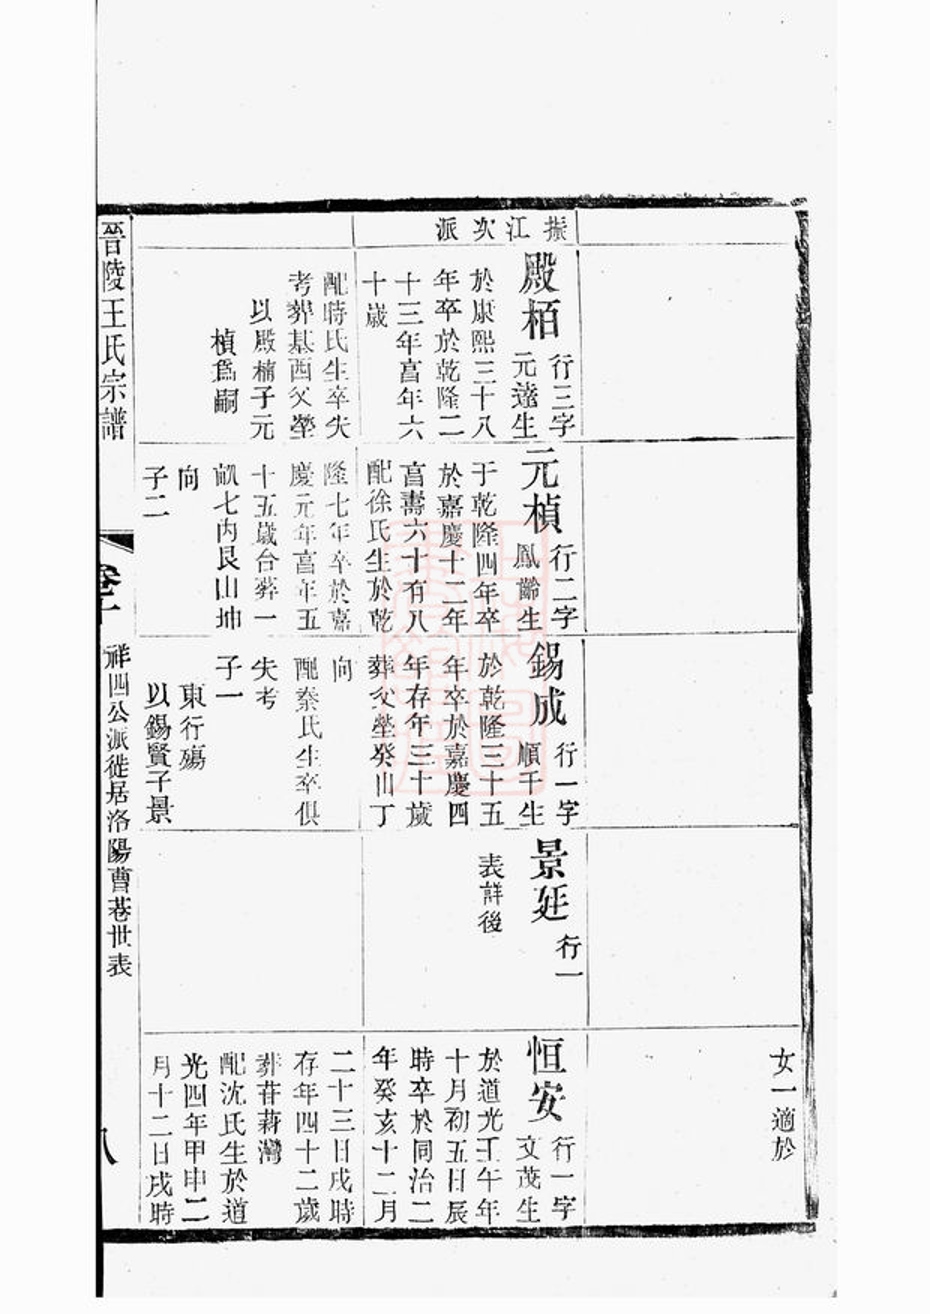 女一適於
振江次派
殿栢
行三字
元達生
於康熙三十八
年卒於乾隆二
十三年亯年六
十歲
配時氏生卒失
考葬基西父塋
以殿楠子元
楨爲嗣
元楨
行二字
鳳齡生
于乾隆四年卒
於嘉慶十二年
亯壽六十有八
配徐氏生於乾
隆七年卒於嘉
慶元年亯年五
十五歲合葬一
甽七內艮山坤
向
子二
錫成
行一字
順千生
於乾隆三十五
年卒於嘉慶四
年存年三十歲
葬父塋癸山丁
向
配秦氏生卒俱
失考
子一
東行殤
以錫賢子景
景廷
行一
表詳後
恒安
行一字
文茂生
於道光壬午年
十月初五日辰
時卒於同治二
年癸亥十二月
二十三日戌時
存年四十二歲
葬苷蒋灣
配沈氏生於道
光四年甲申二
月十二日戌時
晉陵王氏宗譜
卷十
祥四公派徙居洛陽曹巷世表
八